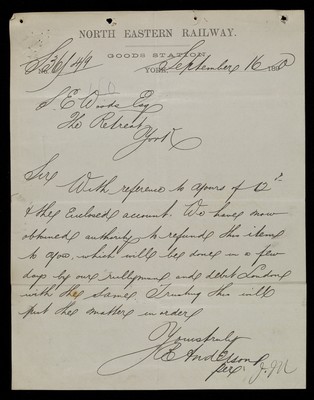 NORTH EASTERN RAILWAY.
GOODS STATION
S36/149
YORK, September 16 1890
S. E. Woods Esq
The Retreat
York
Sir
With reference to yours of 12th
& the Enclosed account. We have now
obtained authority to refund this item
to you, which will be done in a few
days by our rullyman and debit London
with the same. Trusting this will
put the matter in order
Yours truly
Anderson
per J.M